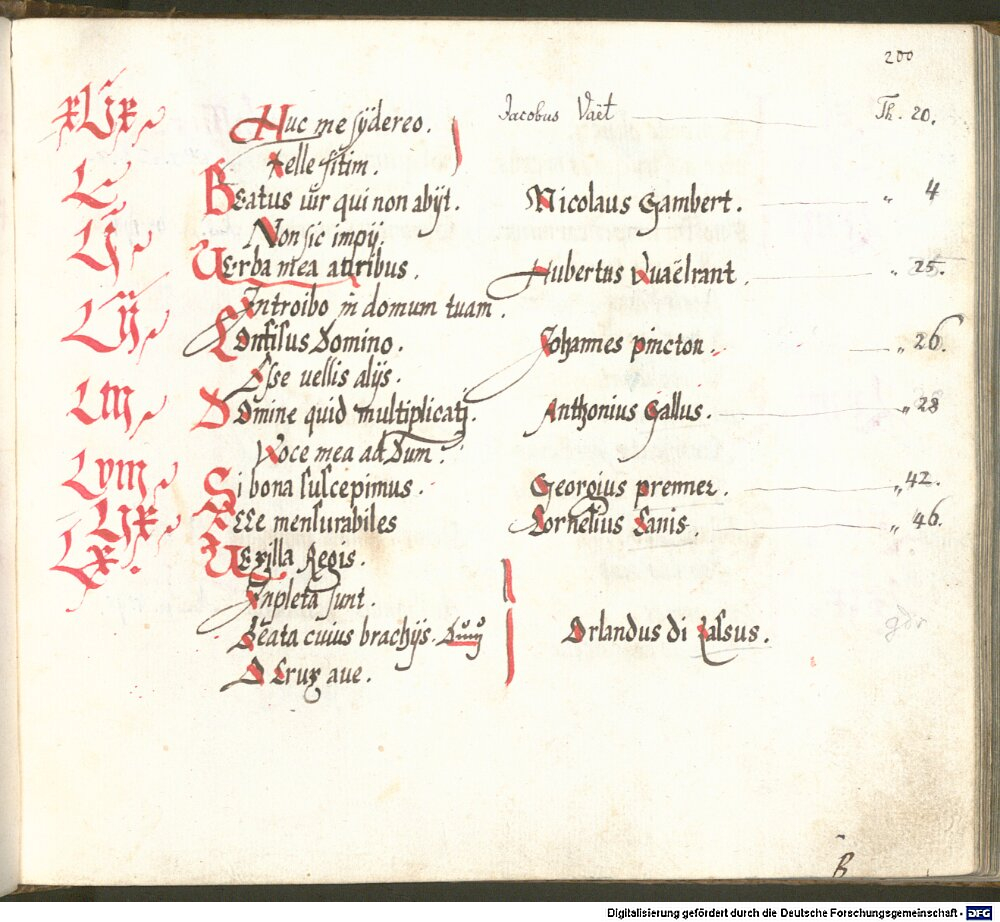 200
xLIx Huc me sÿdereo. Jacobus Vaët Th. 20.
Felle sitim.
L Beatus vir qui non abijt. Nicolaus Gambert. " 4
Non sic impij.
LI Verba mea auribus. Hubertus Waëlrant " 25.
Introibo in domum tuam.
LII Confisus Domino. Johannes pincton. " 26.
Esse vellis alijs.
LIII Domine quid multiplicati. Anthonius Gallus. " 28
Voce mea ad Dum.
LVIII Si bona suscepimus. Georgius prenner. " 42.
LIX Ecce mensurabiles Cornelius Canis. " 46.
LX. Vexilla Regis.
Inpleta sunt.
Beata cuius brachijs. Orlandus di Lassus.
O Crux ave.
B
Digitalisierung gefördert durch die Deutsche Forschungsgemeinschaft - DFG